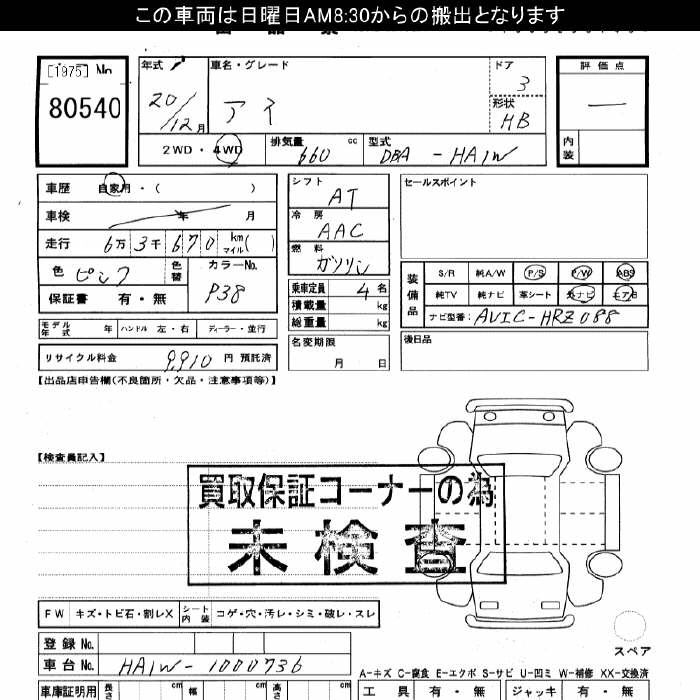 この車両は日曜日AM8:30からの搬出となります
[1975] No.
80540
年式
20/12月
車名・グレード
アイ
ドア
3
形状
HB
評価点
—
内装
2WD・4WD
排気量 660 cc
型式 DBA-HA1W
車歴 自家用・( )
車検 年 月
走行 6万3千670 km マイル( )
色 ピンク 色替
カラーNo. P38
保証書 有・無
モデル年式 年 ハンドル 左・右 ディーラー・並行
リサイクル料金 9,910 円 預託済
シフト AT
冷房 AAC
燃料 ガソリン
乗車定員 4 名
積載量 kg
総重量 kg
名変期限 月 日
セールスポイント
装備品
S/R 純A/W P/S P/W ABS
純TV 純ナビ 革シート 外ナビ エアB
ナビ型番: AVIC-HRZ088
後日品
【出品店申告欄(不良箇所・欠品・注意事項等)】
【検査員記入】
買取保証コーナーの為
未検査
FW キズ・トビ石・割レX シート内装 コゲ・穴・汚レ・シミ・破レ・スレ
スペア
登録No.
車台No. HA1W-1000736
A-キズ C-腐食 E-エクボ S-サビ U-凹ミ W-補修 XX-交換済
車庫証明用 長さ cm 幅 cm 高さ cm
工具 有・無 ジャッキ 有・無